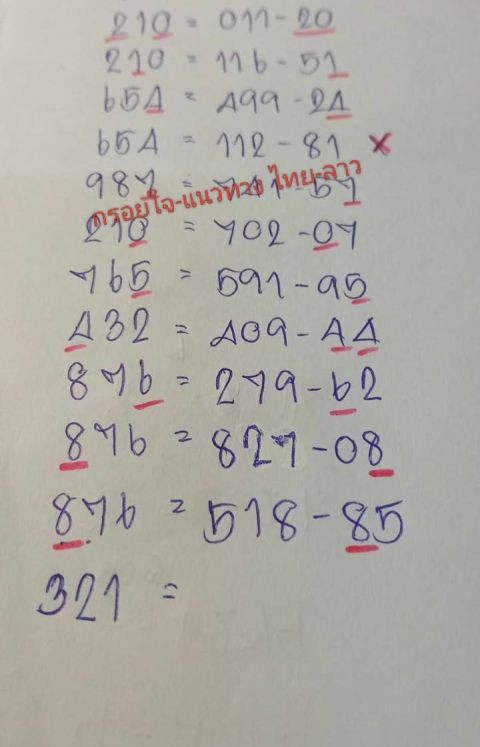 210 = 011-20
210 = 116-51
654 = 499-24
654 = 112-81 ×
987 =
แนวทาง ไทย-ลาว
210 = 702-07
765 = 591-95
432 = 409-44
876 = 279-62
876 = 827-08
876 = 518-85
321 =